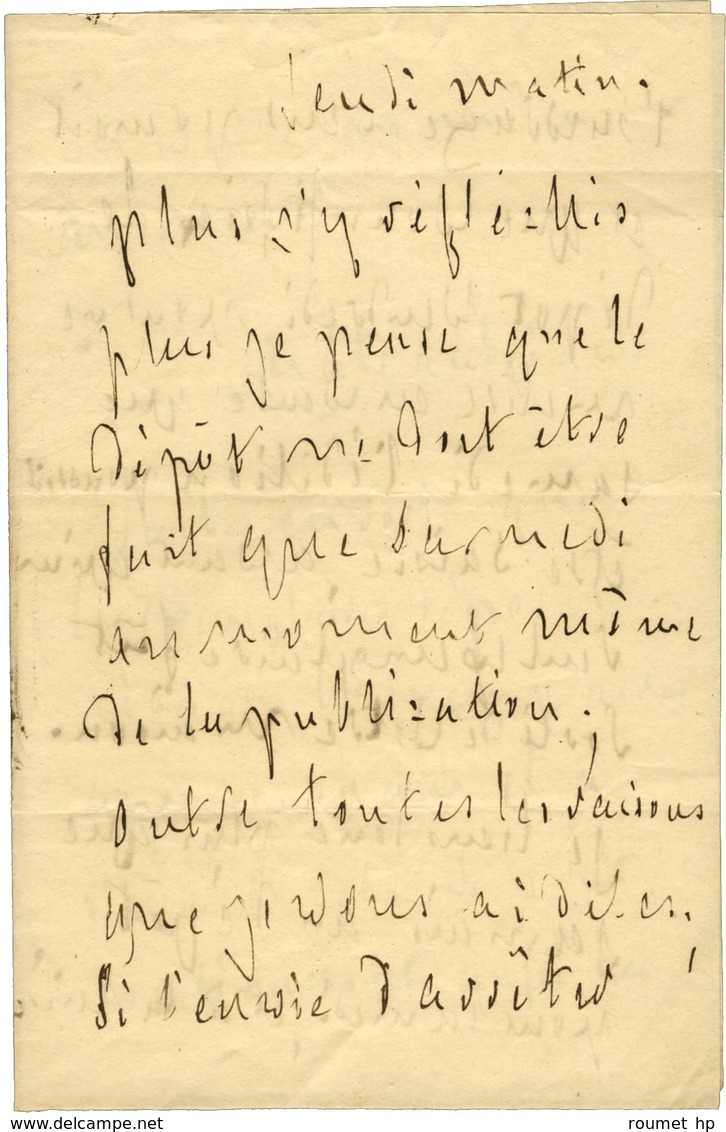 Jeudi matin.
plus j'y réfléchis
plus je pense que le
dépôt ne doit être
fait que samedi
au moment même
de la publication ;
outre toutes les raisons
que je vous ai dites,
si l'envie d'arrêter
roumet hp